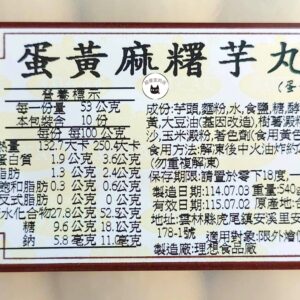 蛋黃麻糬芋丸
(蛋
營養標示
每一份量 53 公克
本包裝含 10 份
每份 每100公克
熱量 132.7大卡 250.4大卡
蛋白質 1.9 公克 3.6公克
脂肪 1.3 公克 2.5公克
飽和脂肪 0.1 公克 0.2公克
脂肪 0 公克 0 公克
水化合物 27.8公克 52.5公克
糖 9.6 公克 18.1公克
鈉 5.8 毫克 11.0毫克
成份:芋頭,麵粉,水,食鹽,糖,酥
黃,大豆油(基因改造),樹薯澱粉
沙,玉米澱粉,著色劑(食用黃色
食用方法:解凍後中火油炸約
(勿重複解凍)
保存期限:請置於零下18度,一
製造日期:114.07.03 重量:540
有效日期:115.07.02 原產地:台
地址:雲林縣虎尾鎮安溪里安
178-1號 適用對象:限外燴
製造廠:理想食品廠